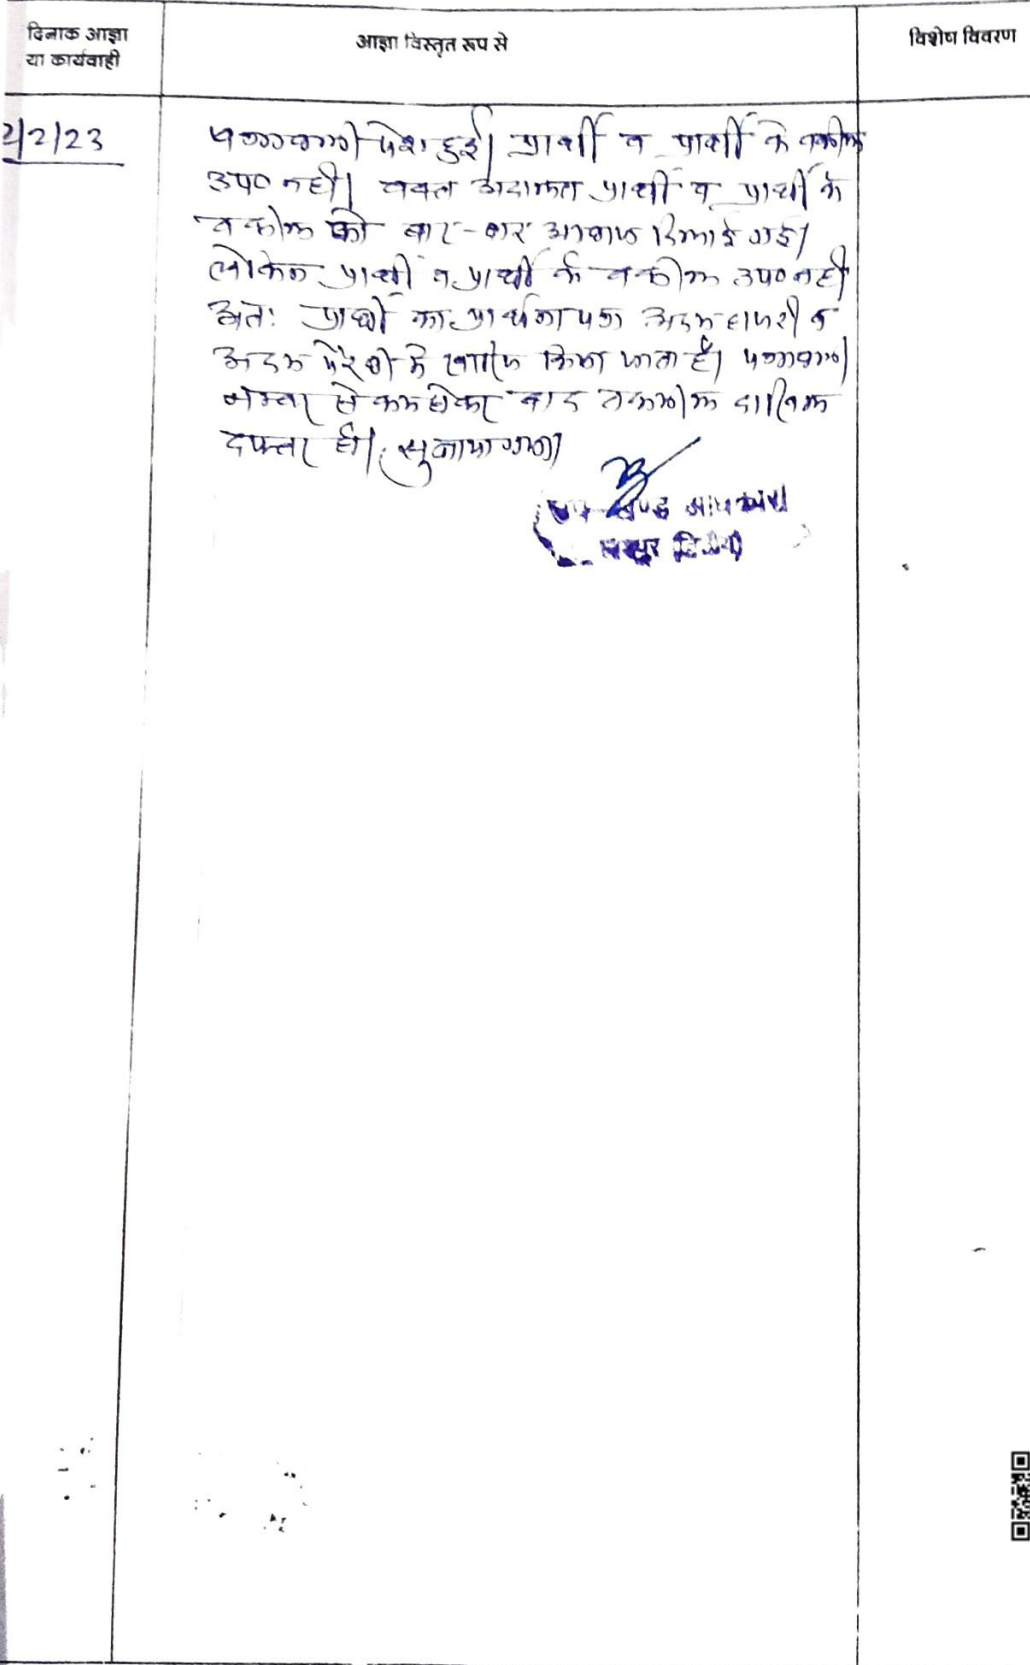 दिनाक आज्ञा
या कार्यवाही
आज्ञा विस्तृत रूप से
विशेष विवरण
2/2/23
पत्रावली पेश हुई। प्रार्थी व प्रार्थी के वकील
उप० नही। वक्त अदालत प्रार्थी व प्रार्थी के
वकील को बार-बार आवाज दिलाई गई।
लेकिन प्रार्थी व प्रार्थी के वकील उप० नही
अतः प्रार्थी का प्रार्थना पत्र अदम हाजरी व
अदम पैरवी मे खारिज किया जाता है। पत्रावली
नम्बर से कम होकर बाद तकमील दाखिल
दफ्तर हो। सुनाया गया।
उप खण्ड अधिकारी